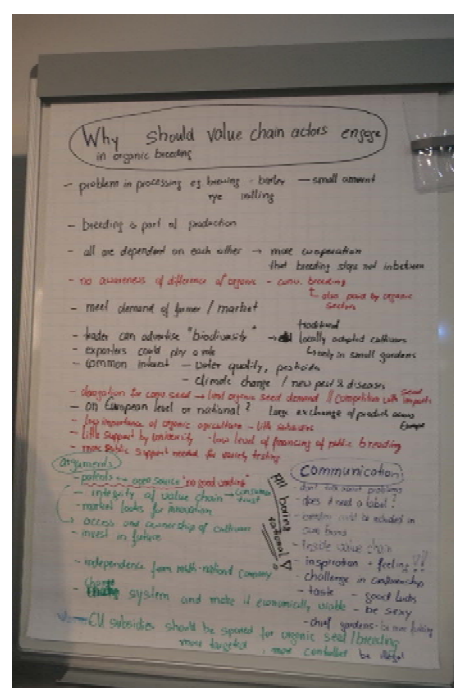 Why should value chain actors engage
in organic breeding
- problem in processing eg brewing - barley - small amount
rye milling
- breeding is part of production
- all are dependent on each other → more cooperation
that breeding stops not in between
- no awareness of difference of organic - conv. breeding
also paid by organic
- meet demand of farmer / market
- trader can advertise "biodiversity" → traditional
locally adapted cultivars
- exporters could play a role
only in small gardens
- common interest - water quality, pesticides
- climate change / new pest & diseases
- derogation for conv. seed → limit organic seed demand // competition with seed imports
- on European level or national? Large exchange of products across Europe
- low importance of organic agriculture - little subsidies
- little support by university - low level of financing of public breeding
- more public support needed for variety testing
arguments
- patents ↔ open source
- integrity of value chain → consumer trust
- market looks for innovation
access and ownership of cultivars
- invest in future
- independence from multi-national company
change system and make it economically viable
EU subsidies should be spent for organic seed/breeding
more targeted, more controlled
Communication
- don't talk about problems
- does it need a label?
could be included in
- trade value chain
- inspiration + feeling !!
- challenge in
- taste - good looks
- be sexy
- chief gardens
be illegal